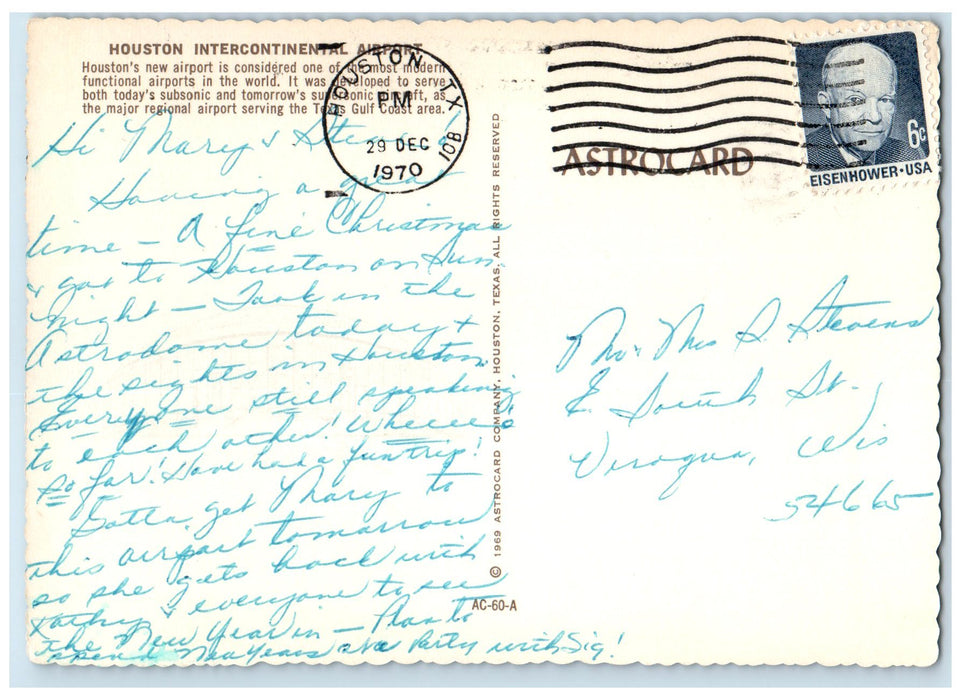 HOUSTON INTERCONTINENTAL AIRPORT
Houston's new airport is considered one of the most modern
functional airports in the world. It was developed to serve
both today's subsonic and tomorrow's supersonic aircraft, as
the major regional airport serving the Texas Gulf Coast area.
Hi Mary & Steve!
Having a great
time — A fine Christmas
& got to Houston on Sun.
night — Took in the
Astrodome today +
the sights in Houston.
Everyone still speaking
to each other! Wheeee
so far! Have had a fun trip!
Gotta get Mary to
this airport tomorrow
so she gets back with
Kathy & everyone to see
the New Year in — Plan to
spend New Years eve Party with Sig!
HOUSTON, TX
PM
29 DEC
1970
108
ASTROCARD
6c
EISENHOWER·USA
Mr. Mrs S. Stevens
E. South St.
Viroqua, Wis
54665
© 1969 ASTROCARD COMPANY, HOUSTON, TEXAS, ALL RIGHTS RESERVED
AC-60-A